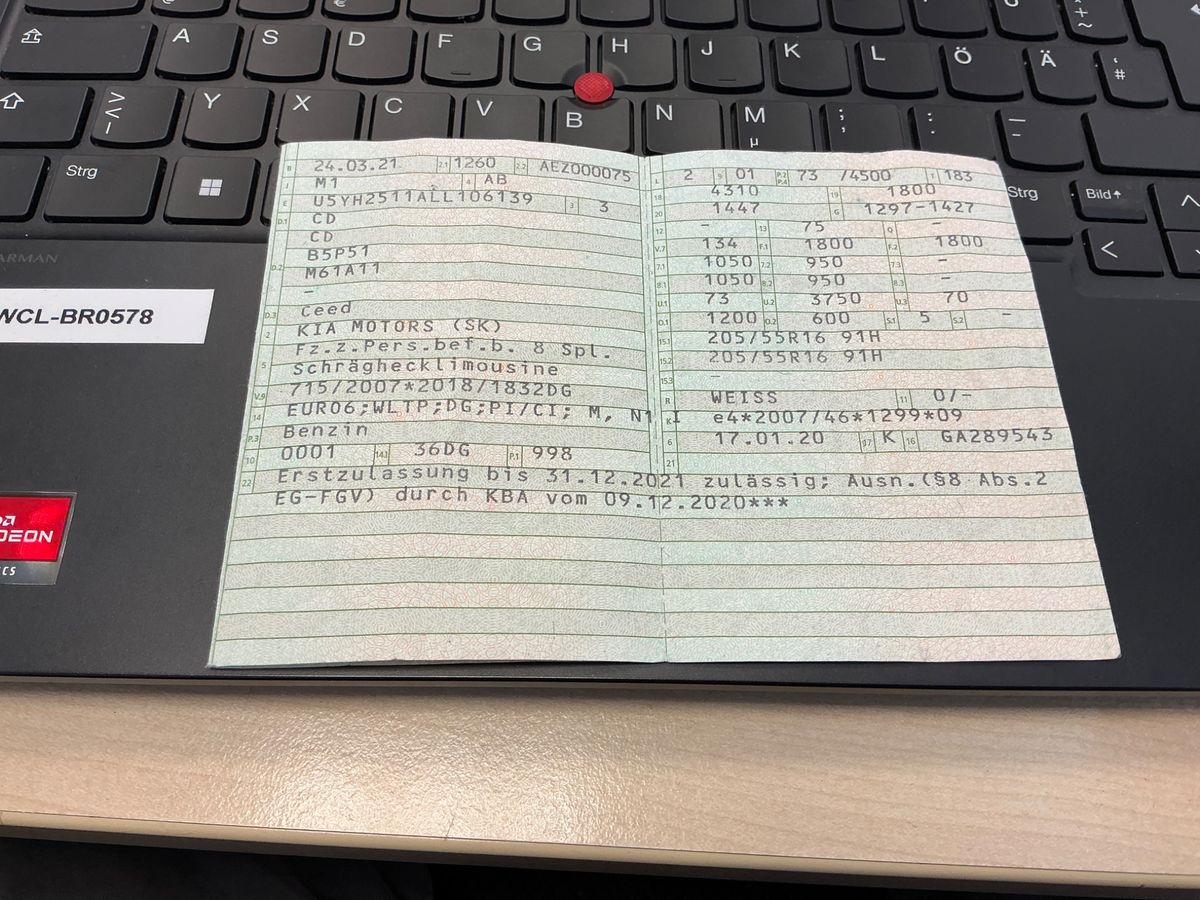 A S D F G H J K L Ö Ä ' #
> < | Y X C V B N M µ ; , : . _ -
Strg Strg Bild
<
ARMAN
WCL-BR0578
DEON
B 24.03.21 2.1 1260 2.2 AEZ000075
J M1 4 AB
E U5YH2511ALL106139 3 3
D.1 CD
CD
D.2 B5P51
M61A11
-
D.3 Ceed
2 KIA MOTORS (SK)
5 Fz.z.Pers.bef.b. 8 Spl.
Schräghecklimousine
V.9 715/2007*2018/1832DG
14 EURO6;WLTP;DG;PI/CI; M, N1 I
P.3 Benzin
10 0001 14.1 36DG P.1 998
22 Erstzulassung bis 31.12.2021 zulässig; Ausn.(§8 Abs.2
EG-FGV) durch KBA vom 09.12.2020***
L 2 9 01 P.2 P.4 73 /4500 T 183
18 4310 19 1800
20 1447 G 1297-1427
12 - 13 75 Q -
V.7 134 F.1 1800 F.2 1800
7.1 1050 7.2 950 7.3 -
8.1 1050 8.2 950 8.3 -
U.1 73 U.2 3750 U.3 70
O.1 1200 O.2 600 S.1 5 S.2 -
15.1 205/55R16 91H
15.2 205/55R16 91H
15.3 -
R WEISS 11 0/-
K e4*2007/46*1299*09
6 17.01.20 17 K 16 GA289543
21